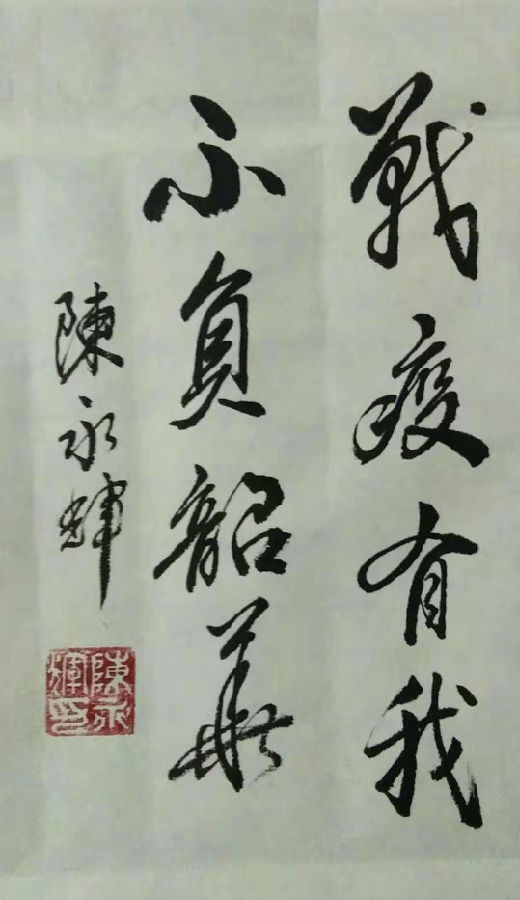 戰疫有我
不負韶華
陳永輝
陳永輝印